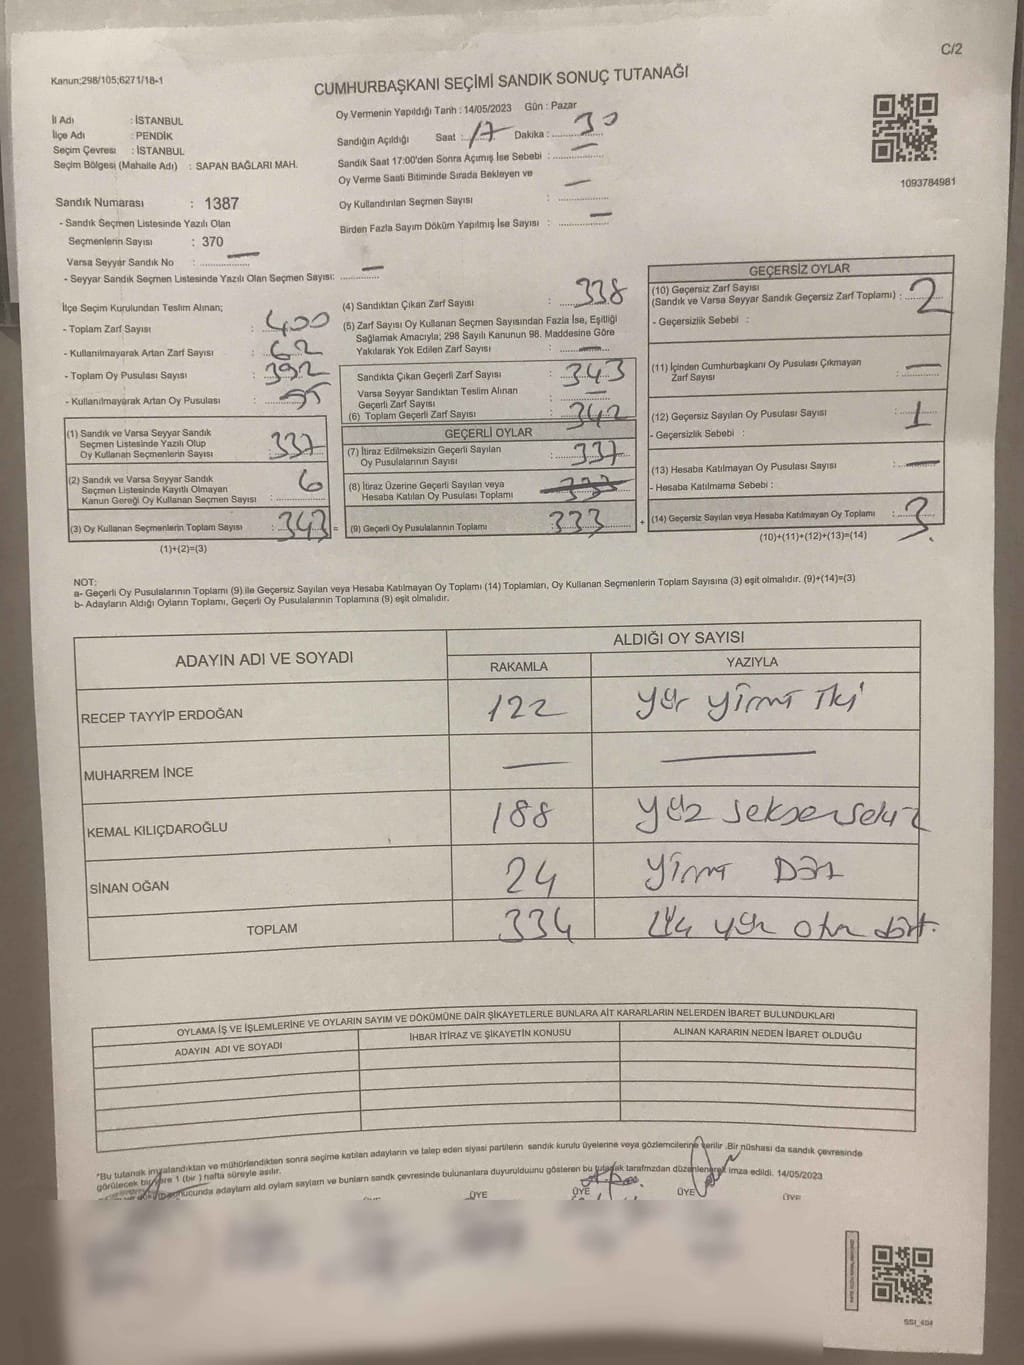 C/2
Kanun;298/105;6271/18-1
CUMHURBAŞKANI SEÇİMİ SANDIK SONUÇ TUTANAĞI
İl Adı : İSTANBUL
İlçe Adı : PENDİK
Seçim Çevresi : İSTANBUL
Seçim Bölgesi (Mahalle Adı) : SAPAN BAĞLARI MAH.
Oy Vermenin Yapıldığı Tarih : 14/05/2023 Gün : Pazar
Sandığın Açıldığı Saat : 17 Dakika : 30
Sandık Saat 17:00'den Sonra Açımış İse Sebebi : —
Oy Verme Saati Bitiminde Sırada Bekleyen ve
Oy Kullandırılan Seçmen Sayısı : —
Birden Fazla Sayım Döküm Yapılmış İse Sayısı : —
1093784981
Sandık Numarası : 1387
- Sandık Seçmen Listesinde Yazılı Olan
Seçmenlerin Sayısı : 370
Varsa Seyyar Sandık No : —
- Seyyar Sandık Seçmen Listesinde Yazılı Olan Seçmen Sayısı: —
İlçe Seçim Kurulundan Teslim Alınan;
- Toplam Zarf Sayısı : 400
- Kullanılmayarak Artan Zarf Sayısı : 62
- Toplam Oy Pusulası Sayısı : 392
- Kullanılmayarak Artan Oy Pusulası :
(1) Sandık ve Varsa Seyyar Sandık
Seçmen Listesinde Yazılı Olup
Oy Kullanan Seçmenlerin Sayısı : 337
(2) Sandık ve Varsa Seyyar Sandık
Seçmen Listesinde Kayıtlı Olmayan
Kanun Gereği Oy Kullanan Seçmen Sayısı : 6
(3) Oy Kullanan Seçmenlerin Toplam Sayısı : 343 =
(1)+(2)=(3)
(4) Sandıktan Çıkan Zarf Sayısı : 338
(5) Zarf Sayısı Oy Kullanan Seçmen Sayısından Fazla İse, Eşitliği
Sağlamak Amacıyla; 298 Sayılı Kanunun 98. Maddesine Göre
Yakılarak Yok Edilen Zarf Sayısı : —
Sandıkta Çıkan Geçerli Zarf Sayısı : 343
Varsa Seyyar Sandıktan Teslim Alınan
Geçerli Zarf Sayısı : —
(6) Toplam Geçerli Zarf Sayısı : 342
GEÇERLİ OYLAR
(7) İtiraz Edilmeksizin Geçerli Sayılan
Oy Pusulalarının Sayısı : 337
(8) İtiraz Üzerine Geçerli Sayılan veya
Hesaba Katılan Oy Pusulası Toplamı : 333
(9) Geçerli Oy Pusulalarının Toplamı : 333 +
GEÇERSİZ OYLAR
(10) Geçersiz Zarf Sayısı
(Sandık ve Varsa Seyyar Sandık Geçersiz Zarf Toplamı) : 2
- Geçersizlik Sebebi :
(11) İçinden Cumhurbaşkanı Oy Pusulası Çıkmayan
Zarf Sayısı : —
(12) Geçersiz Sayılan Oy Pusulası Sayısı : 1
- Geçersizlik Sebebi :
(13) Hesaba Katılmayan Oy Pusulası Sayısı : —
- Hesaba Katılmama Sebebi :
(14) Geçersiz Sayılan veya Hesaba Katılmayan Oy Toplamı : 3.
(10)+(11)+(12)+(13)=(14)
NOT:
a- Geçerli Oy Pusulalarının Toplamı (9) ile Geçersiz Sayılan veya Hesaba Katılmayan Oy Toplamı (14) Toplamları, Oy Kullanan Seçmenlerin Toplam Sayısına (3) eşit olmalıdır. (9)+(14)=(3)
b- Adayların Aldığı Oyların Toplamı, Geçerli Oy Pusulalarının Toplamına (9) eşit olmalıdır.
ADAYIN ADI VE SOYADI ALDIĞI OY SAYISI
RAKAMLA YAZIYLA
RECEP TAYYİP ERDOĞAN 122 yüz yirmi iki
MUHARREM İNCE — —
KEMAL KILIÇDAROĞLU 188 yüz seksen sekiz
SİNAN OĞAN 24 yirmi Dört
TOPLAM 334 üç yüz otuz dört.
OYLAMA İŞ VE İŞLEMLERİNE VE OYLARIN SAYIM VE DÖKÜMÜNE DAİR ŞİKAYETLERLE BUNLARA AİT KARARLARIN NELERDEN İBARET BULUNDUKLARI
ADAYIN ADI VE SOYADI İHBAR İTİRAZ VE ŞİKAYETİN KONUSU ALINAN KARARIN NEDEN İBARET OLDUĞU
"Bu tutanak imzalandıktan ve mühürlendikten sonra seçime katılan adayların ve talep eden siyasi partilerin sandık kurulu üyelerine veya gözlemcilerine verilir .Bir nüshası da sandık çevresinde
görülecek bir yere 1 (bir ) hafta süreyle asılır.
sonucunda adayların ald oyların sayların ve bunların sandk çevresinde bulunanlara duyurulduunu gösteren bu tutanak tarafmzdan düzenlenerek imza edildi. 14/05/2023
ÜYE ÜYE ÜYE ÜYE
SSİ_404